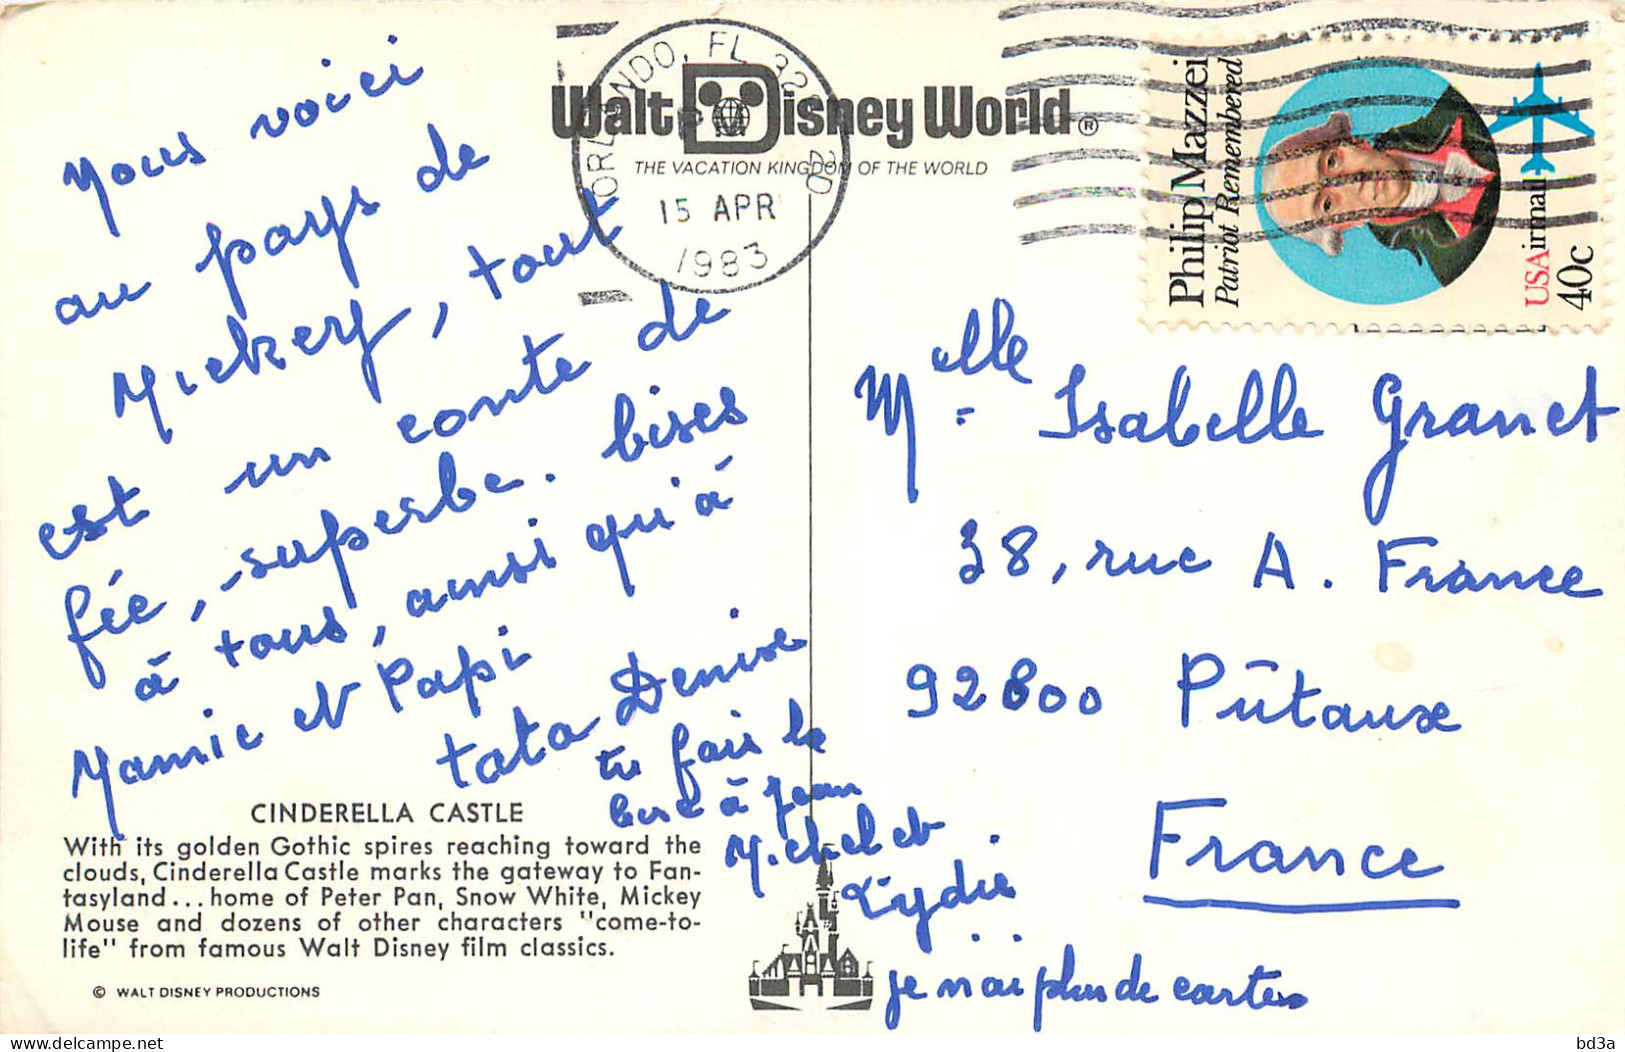 Walt Disney World ®
THE VACATION KINGDOM OF THE WORLD
ORLANDO, FL
15 APR
1983
Philip Mazzei
Patriot Remembered
USAirmail
40c
Nous voici
au pays de
Mickey, tout
est un conte de
fée, superbe. bises
à tous, ainsi qu'à
Mamie et Papi
tata Denise
tu fais la
bise à Jean
Michel et
Lydie
je n'ai plus de cartes
Melle Isabelle Granet
38, rue A. France
92800 Pûtaux
France
CINDERELLA CASTLE
With its golden Gothic spires reaching toward the
clouds, Cinderella Castle marks the gateway to Fan-
tasyland... home of Peter Pan, Snow White, Mickey
Mouse and dozens of other characters "come-to-
life" from famous Walt Disney film classics.
© WALT DISNEY PRODUCTIONS
bd3a